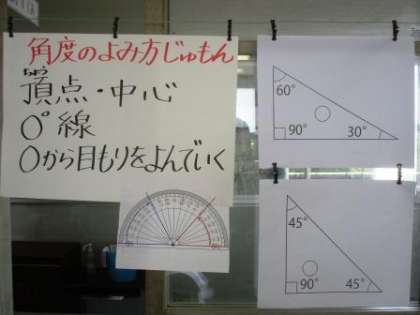 角度のよみ方じゅもん
頂点・中心
0°線
0から目もりをよんでいく
60°
90°
30°
45°
90°
45°